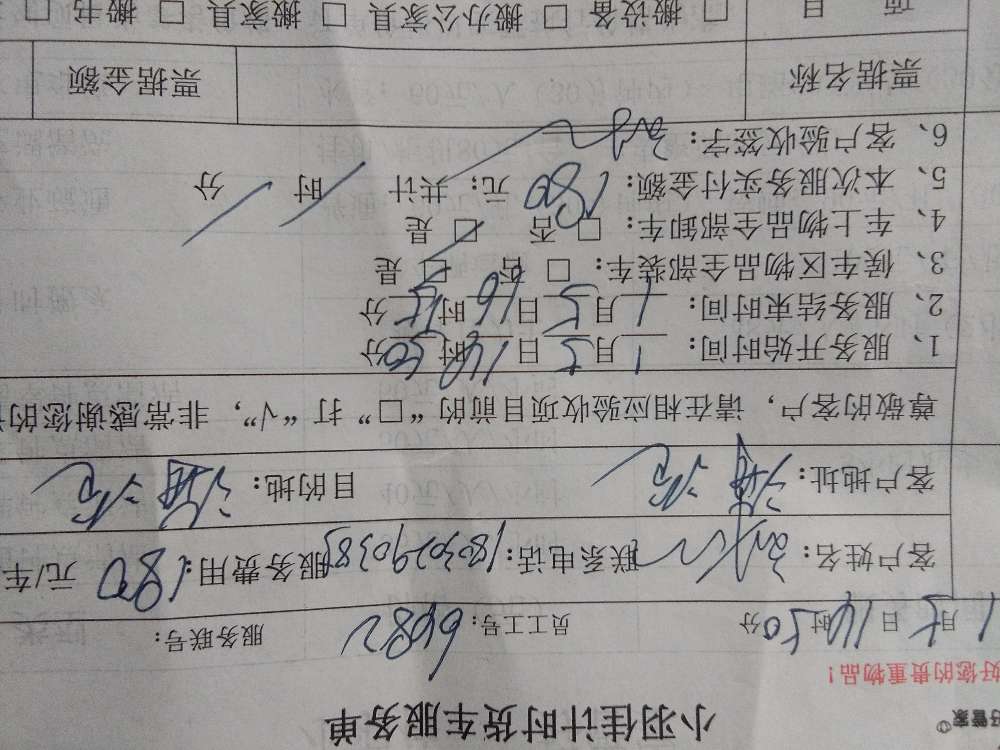 好管家
小羽佳计时货车服务单
好您的贵重物品!
1月5日14时50分 员工工号: 6682 服务联号:
客户姓名: 联系电话: 18030290385 服务费用: 180元/车
客户地址: 目的地:
尊敬的客户，请在相应验收项目前的“□”打“√”，非常感谢您的
1、服务开始时间: 1月5日14时50分
2、服务结束时间: 1月5日16时15分
3、候车区物品全部装车: □ 否 □ 是
4、车上物品全部卸车: □ 否 □ 是
5、本次服务实付金额: 180元; 共计 时 分
6、客户验收签字:
票据名称 票据金额
项 目 □ 搬设备 □ 搬办公家具 □ 搬家具 □ 搬书 □